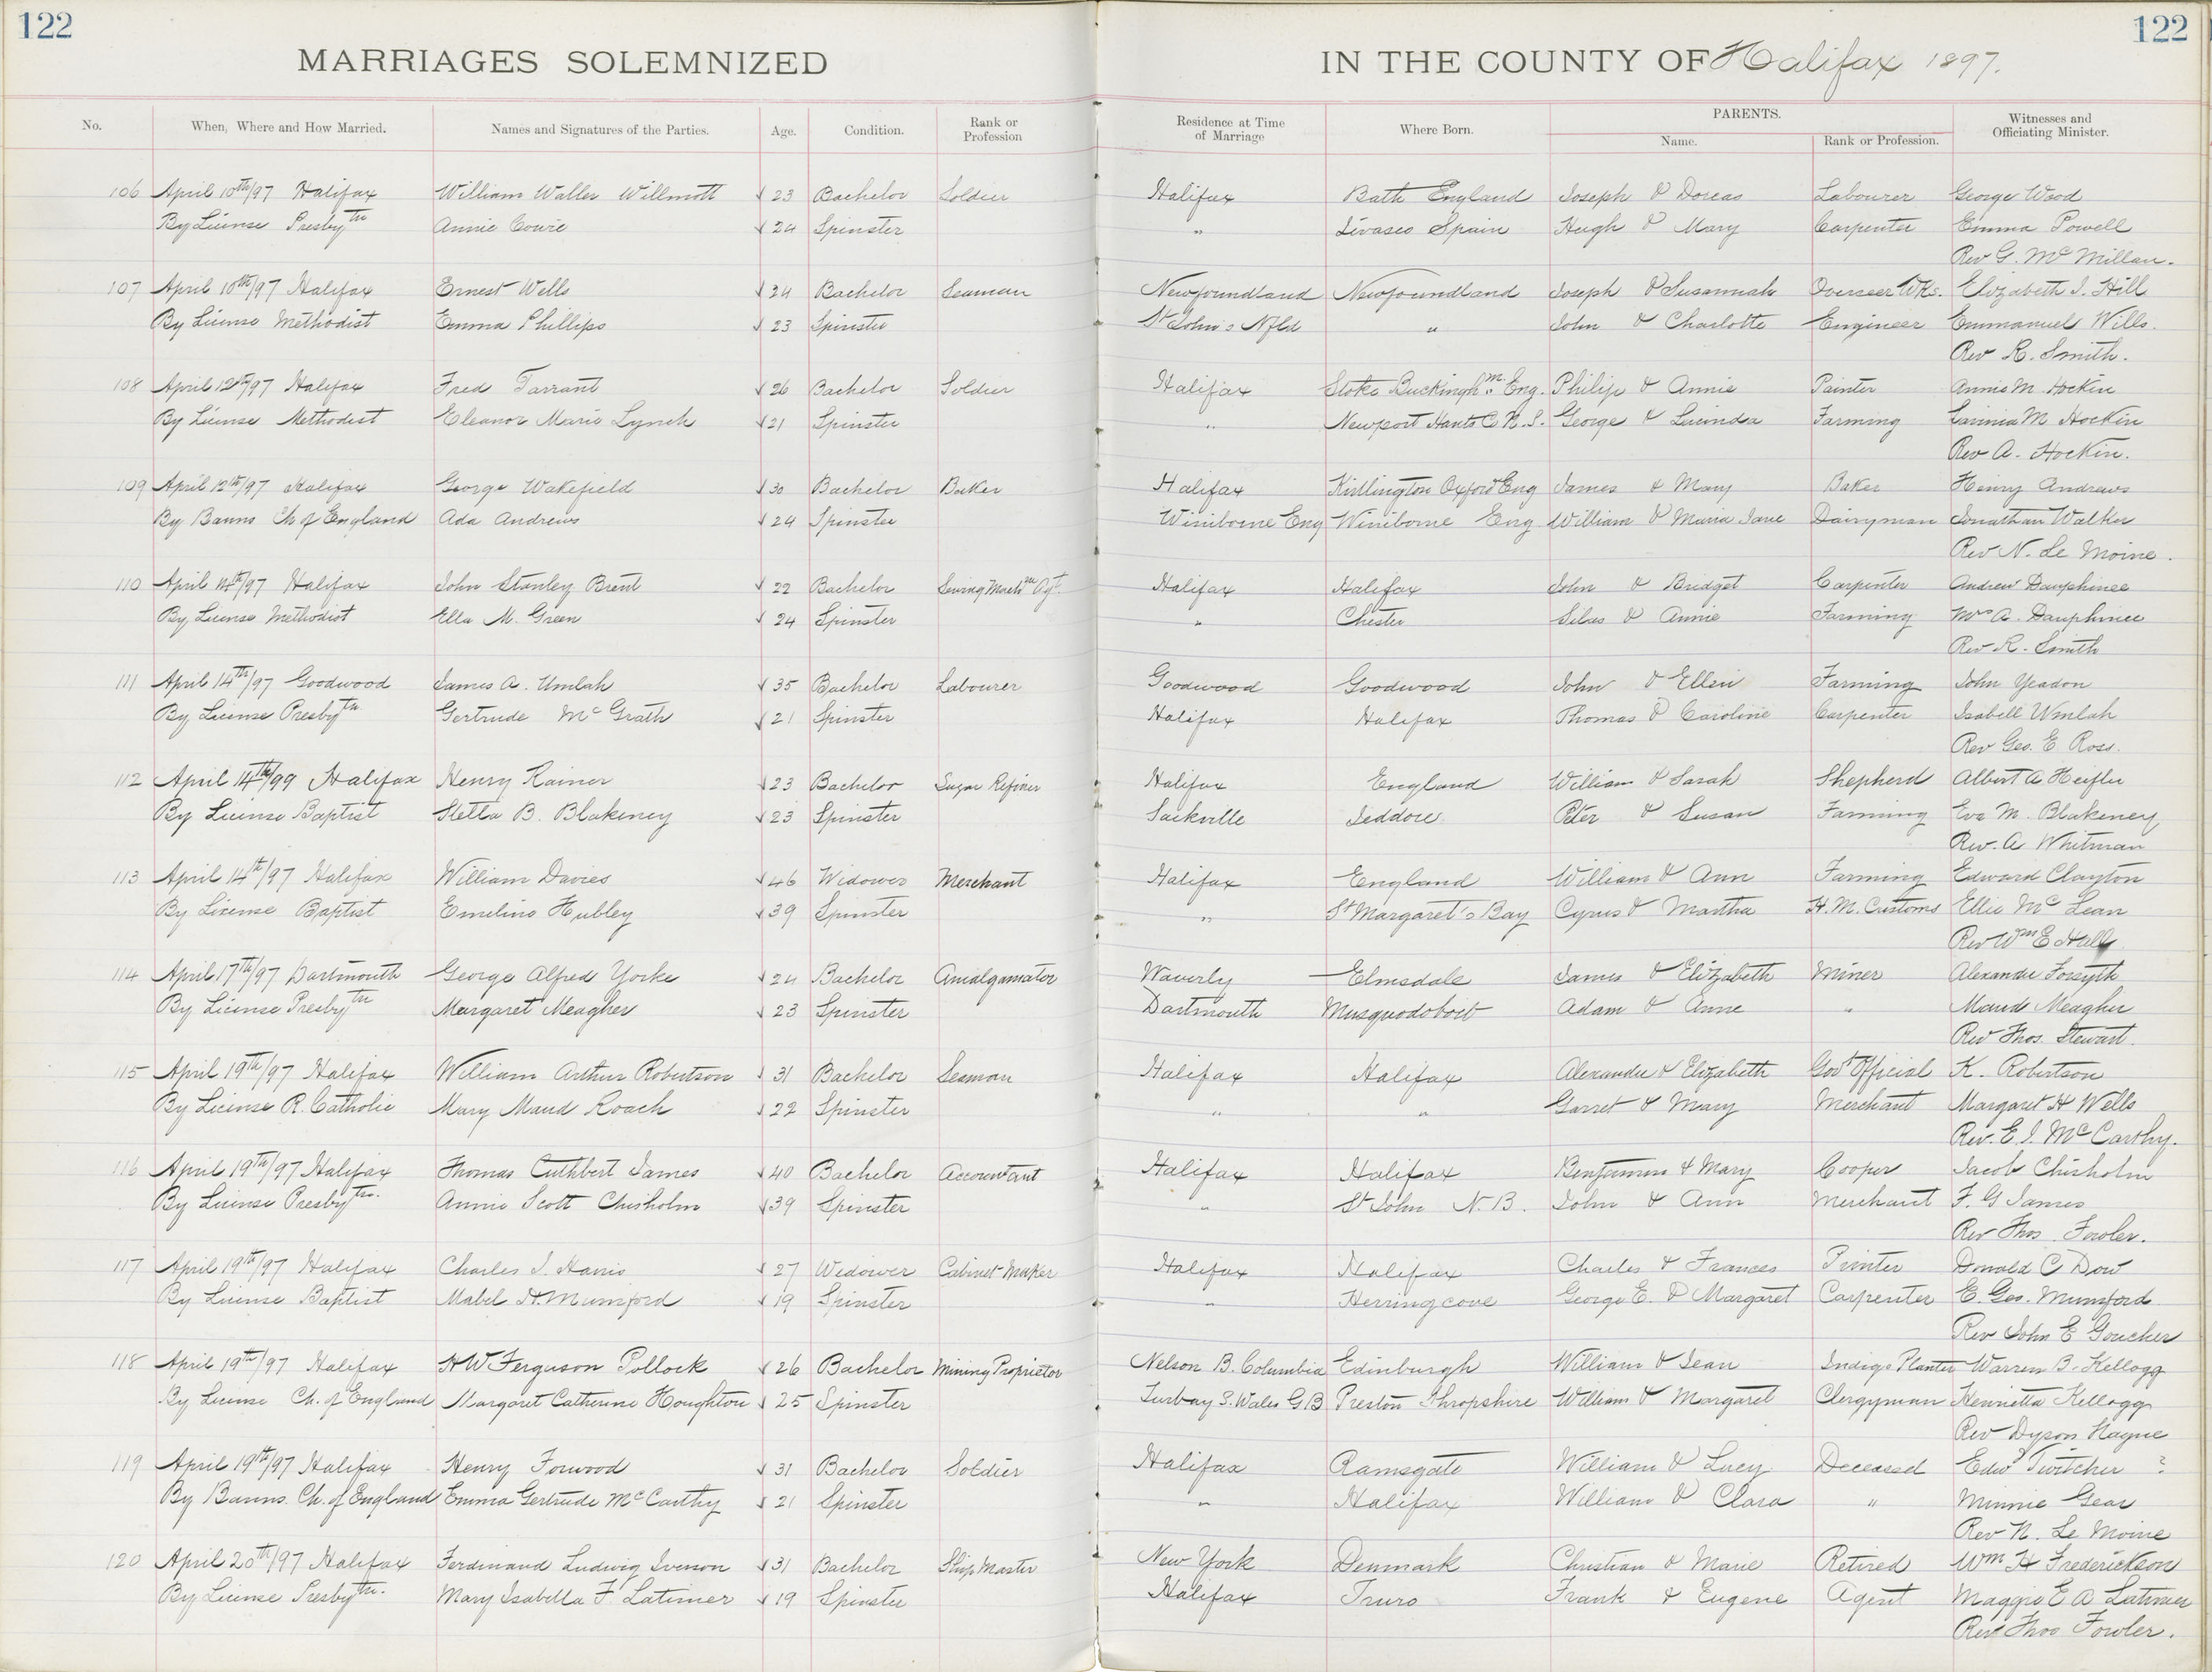 122
122
MARRIAGES SOLEMNIZED IN THE COUNTY OF Halifax 1897.
No. When, Where and How Married. Names and Signatures of the Parties. Age. Condition. Rank or Profession Residence at Time of Marriage Where Born. PARENTS. Name. Rank or Profession. Witnesses and Officiating Minister.
106 April 10th/97 Halifax William Walter Willmott √ 23 Bachelor Soldier Halifax Bath England Joseph & Dorcas Labourer George Wood
By License Presbytn Annie Cowie √ 24 Spinster " Spain Hugh & Mary Carpenter Emma Powell
Rev G. McMillan.
107 April 10th/97 Halifax Ernest Wells √ 34 Bachelor Seaman Newfoundland Newfoundland Joseph & Susannah Overseer Wks. Elizabeth J. Hill
By License Methodist Emma Phillips √ 23 Spinster St John's Nfld " John & Charlotte Engineer Emmanuel Wills.
Rev R. Smith.
108 April 12th/97 Halifax Fred Tarrant √ 26 Bachelor Soldier Halifax Stoke Buckinghm. Eng. Philip & Annie Painter Annie M. Hockin
By License Methodist Eleanor Marie Lynch √ 21 Spinster " Newport Hants C N.S. George & Lucinda Farming M Hockin
Rev A. Hockin.
109 April 12th/97 Halifax George Wakefield √ 30 Bachelor Baker Halifax Kirtlington Oxford Eng James & Mary Baker Henry Andrews
By Banns Ch of England Ada Andrews √ 24 Spinster Winiborne Eng Winiborne Eng William & Maria Jane Dairyman Jonathan Walker
Rev N. Le Moine.
110 April 14th/97 Halifax John Stanley Brent √ 22 Bachelor Sewing Machne Agt. Halifax Halifax John & Bridget Carpenter Andrew Dauphinee
By License Methodist Ella M. Green √ 24 Spinster " Chester Silas & Annie Farming Mrs A. Dauphinee
Rev R. Smith
111 April 14th/97 Goodwood James A. Umlah √ 35 Bachelor Labourer Goodwood Goodwood John & Ellen Farming John Yeadon
By License Presbytn Gertrude McGrath √ 21 Spinster Halifax Halifax Thomas & Caroline Carpenter Isabell Umlah
Rev Geo. E Ross.
112 April 14th/99 Halifax Henry Rainer √ 23 Bachelor Sugar Refiner Halifax England William & Sarah Shepherd Albert A Heifler
By License Baptist Stella B. Blakeney √ 23 Spinster Sackville Jeddore Peter & Susan Farming Eva M. Blakeney
Rev. A Whitman
113 April 14th/97 Halifax William Davies √ 46 Widower Merchant Halifax England William & Ann Farming Edward Clayton
By License Baptist Emeline Hubley √ 39 Spinster " St Margaret's Bay Cyrus & Martha H. M. Customs Ellie McLean
Rev Wm E Hall
114 April 17th/97 Dartmouth George Alfred Yorke √ 24 Bachelor Amalgamator Waverly Elmsdale James & Elizabeth Miner Alexander Forsyth
By License Presbytn Margaret Meagher √ 23 Spinster Dartmouth Musquodoboit Adam & Anne " Maud Meagher
Rev Thos. Stewart.
115 April 19th/97 Halifax William Arthur Robertson √ 31 Bachelor Seaman Halifax Halifax Alexander & Elizabeth Govt Official K. Robertson
By License R. Catholic Mary Maud Roach √ 22 Spinster " " Garret & Mary Merchant Margaret H Wells
Rev. E. J. McCarthy.
116 April 19th/97 Halifax Thomas Cuthbert James √ 40 Bachelor Accountant Halifax Halifax Benjamin & Mary Cooper Jacob Chisholm
By License Presbytn. Annie Scott Chisholm √ 39 Spinster " St John N. B. John & Ann Merchant F. G James
Rev Thos. Fowler.
117 April 19th/97 Halifax Charles J. Harris √ 27 Widower Cabinet Maker Halifax Halifax Charles & Frances Printer Donald C Dow
By License Baptist Mabel H. Mumford √ 19 Spinster " Herringcove George E. & Margaret Carpenter E. Geo. Mumford
Rev John E Goucher
118 April 19th/97 Halifax H W Ferguson Pollock √ 26 Bachelor Mining Proprietor Nelson B. Columbia Edinburgh William & Jean Indigo Planter Warren B. Kellogg
By License Ch. of England Margaret Catherine Houghton √ 25 Spinster S. Wales G.B Preston Shropshire William & Margaret Clergyman Henrietta Kellogg
Rev Dyson Hague
119 April 19th/97 Halifax Henry Forwood √ 31 Bachelor Soldier Halifax Ramsgate William & Lucy Deceased Edwd Twitcher ?
By Banns. Ch. of England Emma Gertrude McCarthy √ 21 Spinster " Halifax William & Clara " Minnie Gear
Rev N. Le Moine
120 April 20th/97 Halifax Ferdinand Ludwig Iverson √ 31 Bachelor Ship Master New York Denmark Christian & Marie Retired Wm H Frederickson
By License Presbytn. Mary Isabella F. Latimer √ 19 Spinster Halifax Truro Frank & Eugene Agent Maggie E A Latimer
Rev Thos Fowler.